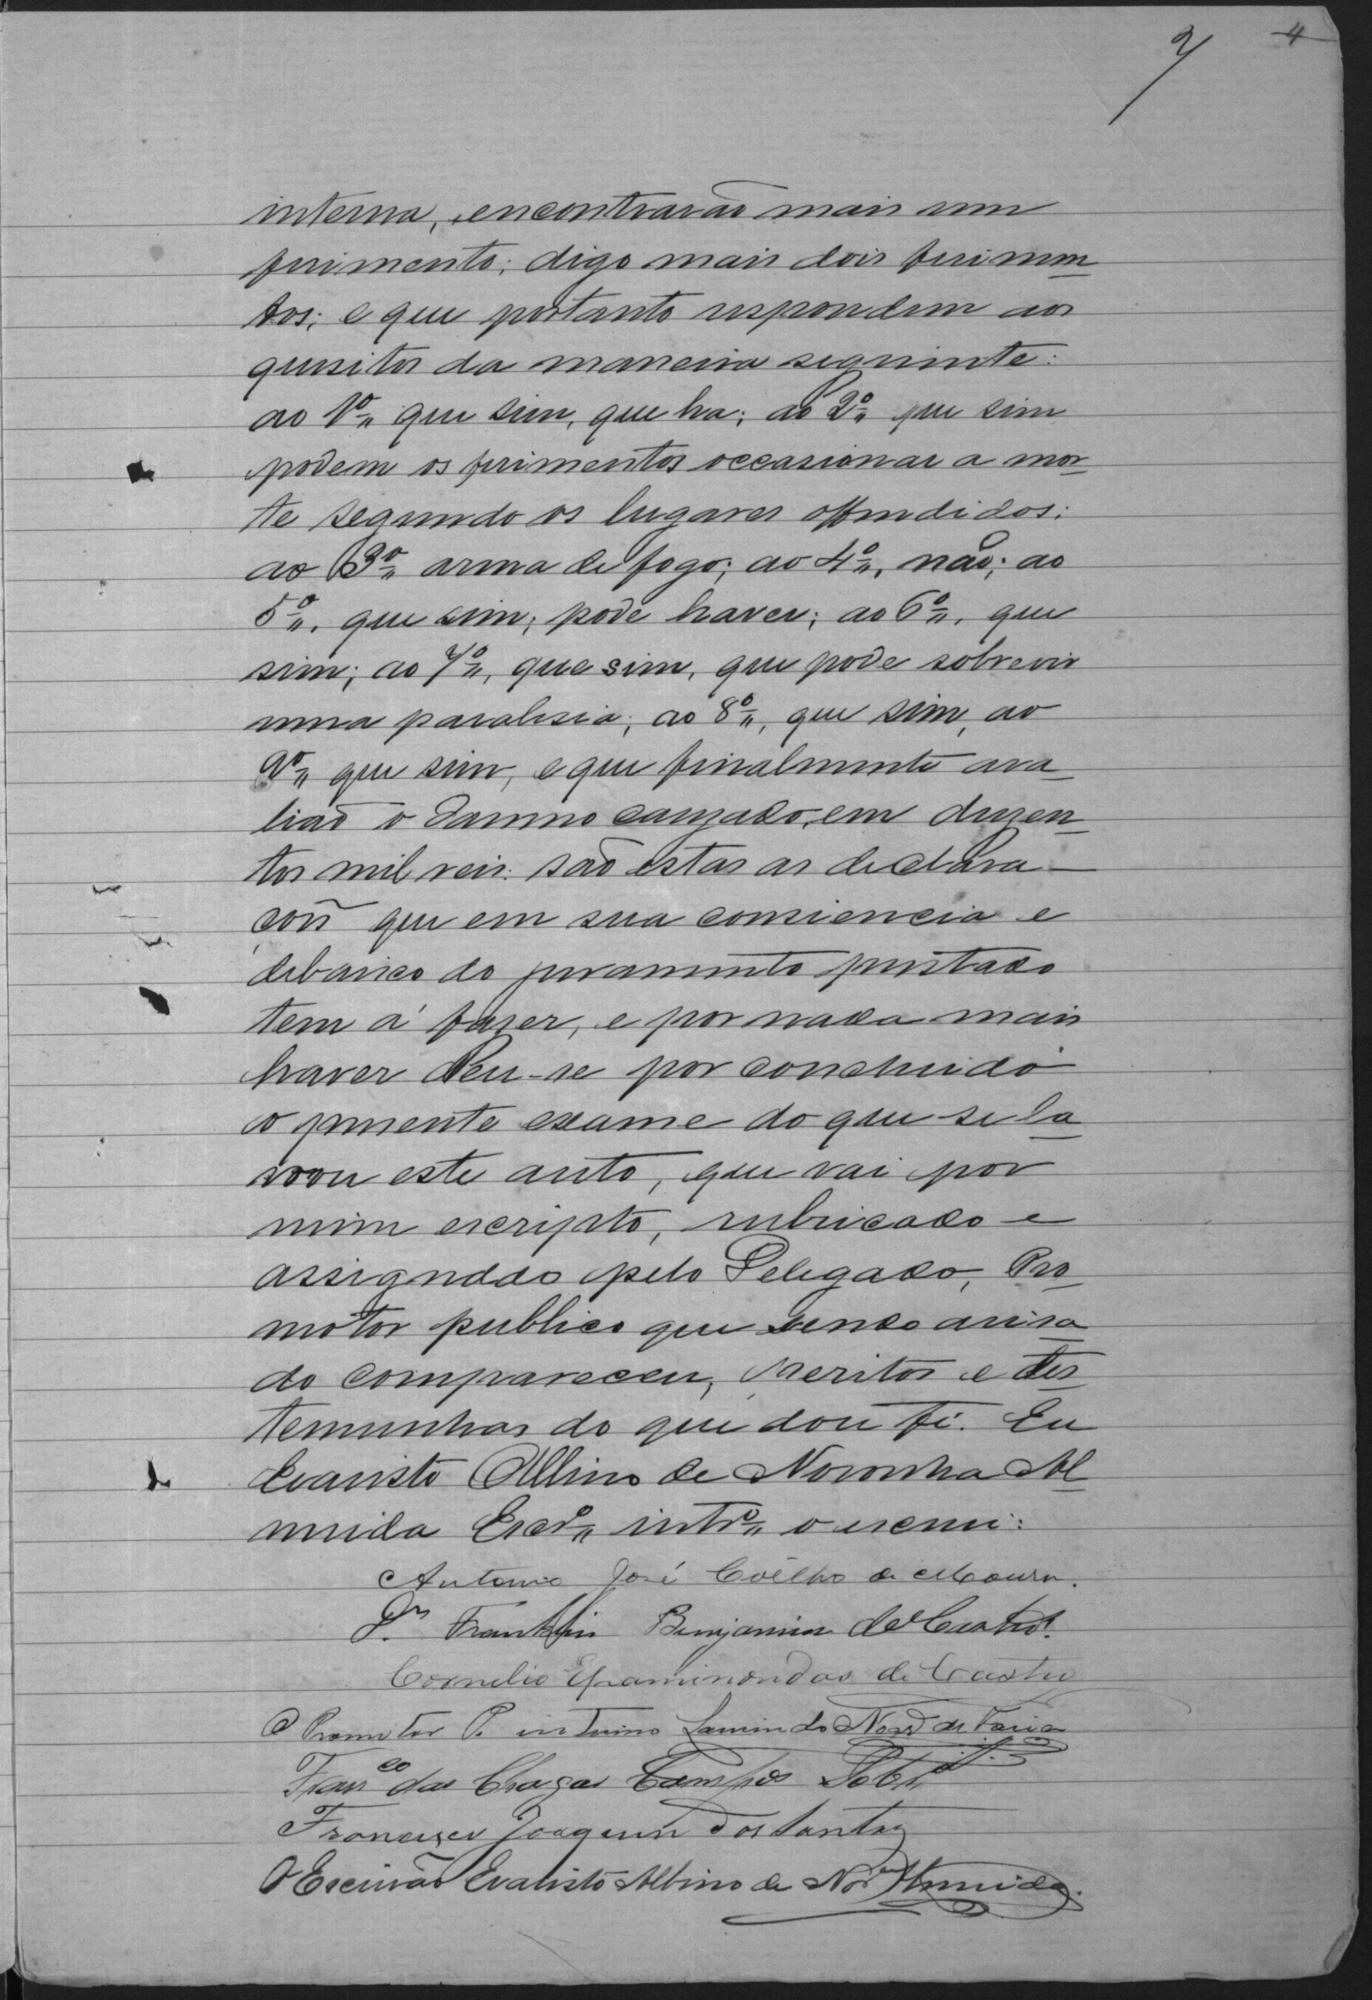 4
interna, encontrarão mais um
ferimento; digo mais dois ferimen
tos; e que portanto respondem aos
quesitos da maneira seguinte:
ao 1º que sim, que ha; ao 2º que sim
podem os ferimentos occasionar a mor
te segundo os lugares offendidos;
ao 3º arma de fogo; ao 4º, não; ao
5º, que sim; pode haver; ao 6º, que
sim; ao 7º, que sim, que pode sobrevir
uma paralisia; ao 8º, que sim, ao
9º que sim, e que finalmente ava
lião o damno cauzado, em duzen
tos mil reis: são estas as declara
çois que em sua consiencia e
debaixo do juramento prestado
tem á fazer, e por nada mais
haver deu-se por concluido
o presente exame do que se la
vrou este auto, que vai por
mim escripto, rubricado e
assignado pelo Delegado, Pro
motor publico que sendo aviza
do compareceu, Peritos e tes
temunhas do que dou fé. Eu
Evaristo Albino de Noronha Al
meida Escrº intrº o escrevi:
Antonio José Coêlho de Moura.
Dr. Franklin Benjamin de Castro.
Cornelio Epaminondas de Castro
O Promotor P. interino Laurindo de Faria
Franco das Chagas Campos Sobrº
Francisco Joaquim dos Santos
O Escrivão Evaristo Albino de Nora Almeida.